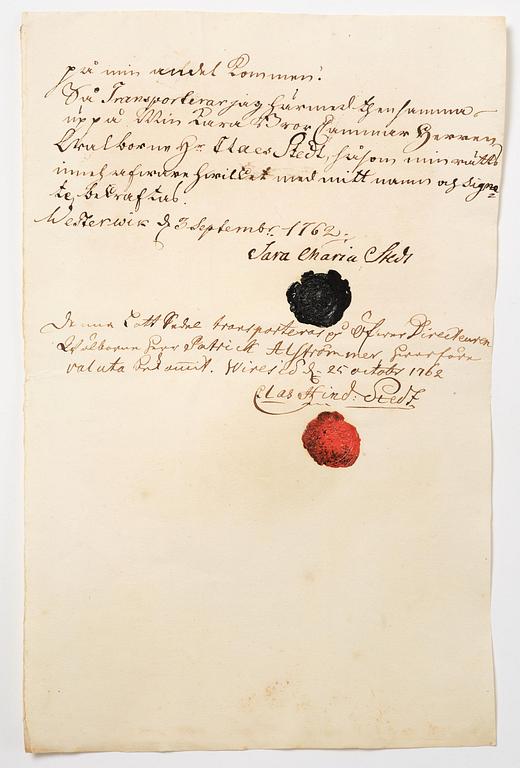 på min andel kommen:
Så Transporterar jag härmed then samma
uppå Min Kära Bror Cammar Herren
Wälborne Hr Claes Stedt, såsom min rätts
innehafware hwilket med mitt namn och Signe-
te, bekräftas.
Westerwik d 3 Septembr. 1762.
Sara Maria Stedt
Denna Lott Sedel transporteras på Öfwer Directeuren
Wälborne Herr Patrick Alströmmer, hwarföre
valuta bekommit. d 25 octobr 1762
Clas Stedt